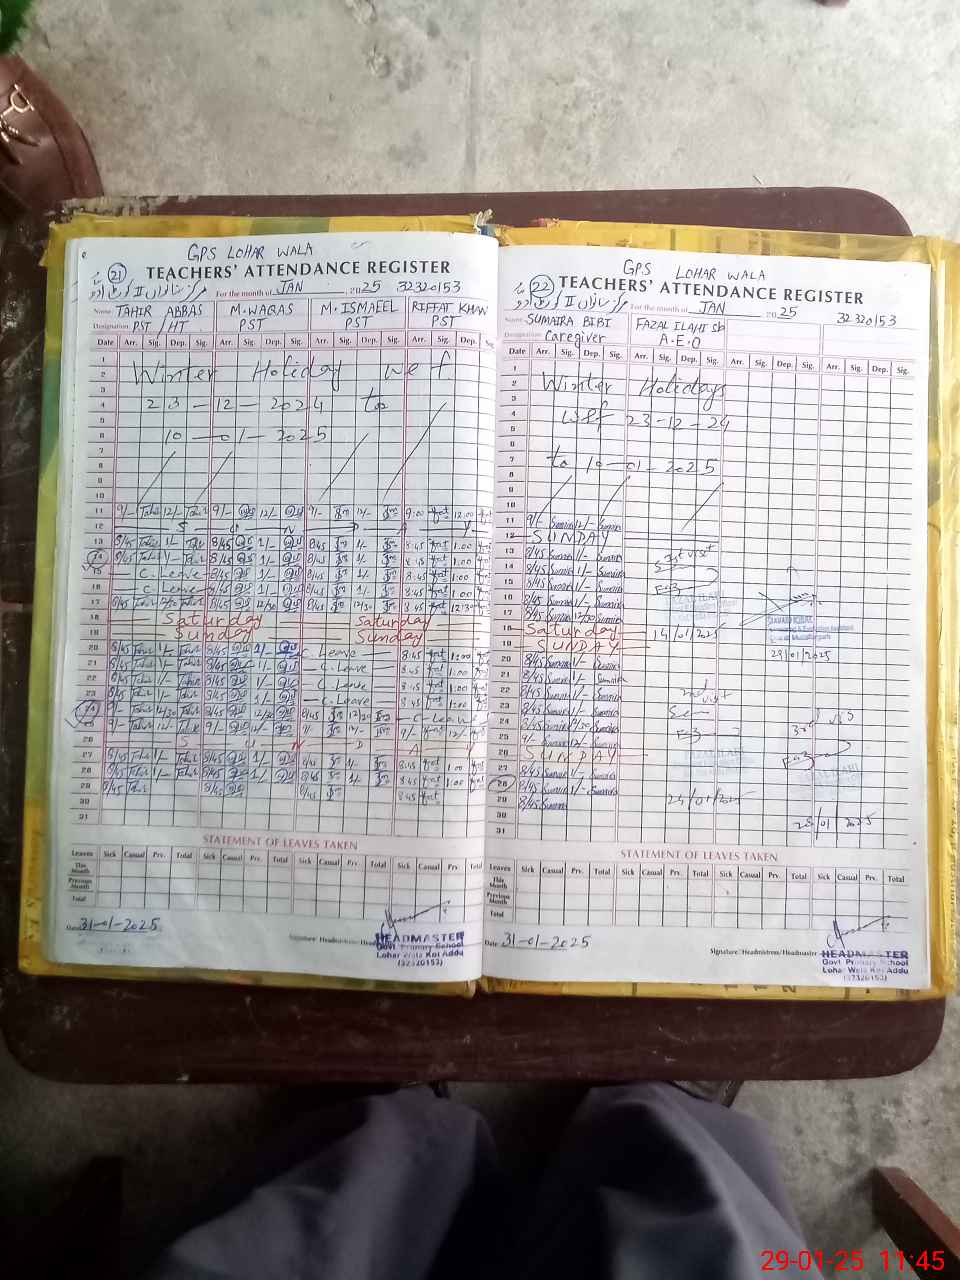 GPS LOHAR WALA
21
TEACHERS' ATTENDANCE REGISTER
For the month of JAN 2025 32320153
Name TAHIR ABBAS M. WAQAS M. ISMAEEL RIFFAT KHAN
Designation PST/HT PST PST PST
Date Arr. Sig. Dep. Sig. Arr. Sig. Dep. Sig. Arr. Sig. Dep. Sig. Arr. Sig. Dep. Sig.
1
2 Winter Holiday wef
3
4 23-12-2024 to
5
6 10-01-2025
7
8
9
10
11 9/- Tahir 12/- Tahir 9/- 12/- 9/- 12/- 9:00 12:00
12 S U N D A Y
13 8/45 Tahir 1/- Tahir 8/45 1/- 8/45 1/- 8:45 1:00
14 8/45 Tahir 1/- Tahir 8/45 1/- 8/45 1/- 8:45 1:00
15 C. Leave 8/45 1/- 8/45 1/- 8:45 1:00
16 C. Leave 8/45 1/- 8/45 1/- 8:45 1:00
17 8/45 Tahir 12/30 Tahir 8/45 12/30 8/45 12/30 8:45 12:30
18 Saturday Saturday
19 Sunday Sunday
20 8/45 Tahir 1/- Tahir 8/45 1/- C. Leave 8:45 1:00
21 8/45 Tahir 1/- Tahir 8/45 1/- C. Leave 8:45 1:00
22 8/45 Tahir 1/- Tahir 8/45 1/- C. Leave 8:45 1:00
23 8/45 Tahir 1/- Tahir 8/45 1/- C. Leave 8:45 1:00
24 9/- Tahir 12/30 Tahir 8/45 12/30 8/45 12/30 C-Leave
25 9/- Tahir 12/- Tahir 9/- 12/- 9/- 12/-
26 S U N D A Y
27 8/45 Tahir 1/- Tahir 8/45 1/- 8/45 1/- 8:45 1:00
28 8/45 Tahir 1/- Tahir 8/45 1/- 8/45 1/- 8:45 1:00
29 8/45 Tahir 8/45 8/45 8:45
30
31
STATEMENT OF LEAVES TAKEN
Leaves Sick Casual Prv. Total Sick Casual Prv. Total Sick Casual Prv. Total Sick Casual Prv. Total
This Month
Previous Month
Total
Date 31-01-2025
Signature/Headmistress/Headmaster
HEADMASTER
Govt Primary School
Lohar Wala Kot Addu
(32320153)
GPS LOHAR WALA
22
TEACHERS' ATTENDANCE REGISTER
For the month of JAN 2025 32320153
Name SUMAIRA BIBI FAZAL ILAHI Sb
Designation Caregiver A.E.O
Date Arr. Sig. Dep. Sig. Arr. Sig. Dep. Sig. Arr. Sig. Dep. Sig. Arr. Sig. Dep. Sig.
1
2 Winter Holidays
3
4 wef 23-12-24
5
6
7 to 10-01-2025
8
9
10
11 9/- Sumaira 12/- Sumaira
12 SUNDAY
13 8/45 Sumaira 1/- Sumaira
14 8/45 Sumaira 1/- Sumaira 1st visit
15 8/45 Sumaira 1/- Sumaira
16 8/45 Sumaira 1/- Sumaira
17 8/45 Sumaira 12/30 Sumaira
18 Saturday 14/01/2025
19 SUNDAY 29/01/2025
20 8/45 Sumaira 1/- Sumaira
21 8/45 Sumaira 1/- Sumaira
22 8/45 Sumaira 1/- Sumaira 2nd visit
23 8/45 Sumaira 1/- Sumaira
24 8/45 Sumaira 12/30 Sumaira 3rd vis
25 9/- Sumaira 12/- Sumaira
26 SUNDAY
27 8/45 Sumaira 1/- Sumaira
28 8/45 Sumaira 1/- Sumaira
29 8/45 Sumaira 24/01/2025
30 28/01/2025
31
STATEMENT OF LEAVES TAKEN
Leaves Sick Casual Prv. Total Sick Casual Prv. Total Sick Casual Prv. Total Sick Casual Prv. Total
This Month
Previous Month
Total
Date 31-01-2025
Signature/Headmistress/Headmaster
HEADMASTER
Govt Primary School
Lohar Wala Kot Addu
(32320153)
29-01-25 11:45